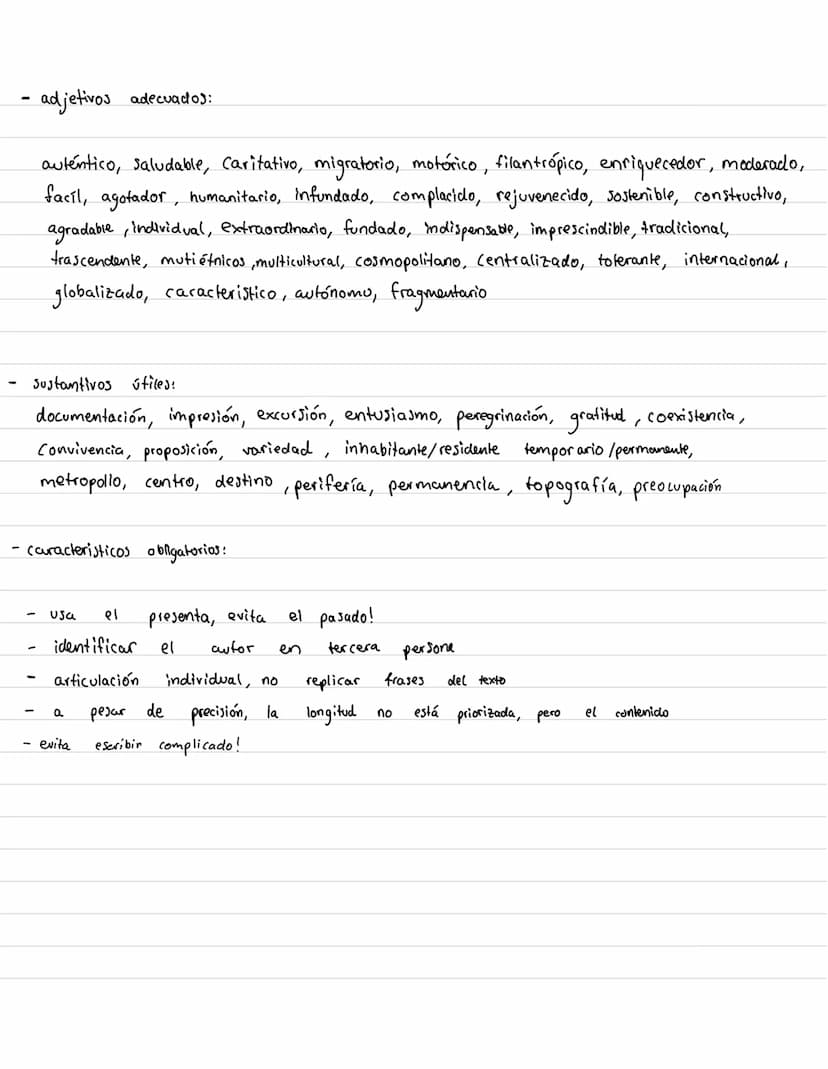 - adjetivos adecuados:
auténtico, saludable, caritativo, migratorio, motórico, filantrópico, enriquecedor, moderado,
facíl, agotador, humanitario, infundado, complacido, rejuvenecido, sostenible, constructivo,
agradable, individual, extraordinario, fundado, indispensable, imprescindible, tradicional,
trascendente, mutiétnicos, multicultural, cosmopolitano, centralizado, tolerante, internacional,
globalizado, caracteristico, autónomo, fragmentario
- sustantivos útiles:
documentación, impresión, excursión, entusiasmo, peregrinación, gratitud, coexistencia,
Convivencia, proposición, variedad, inhabitante/residente temporario/permanente,
metropollo, centro, destino, perifería, permanencia, topografía, preocupación
- caracteristicos obligatorios:
- usa el presenta, evita el pasado!
- identificar el autor en tercera persona
- articulación individual, no replicar frases del texto
- a pesar de precisión, la longitud no está priorizada, pero el contenido
- evita escribir complicado!